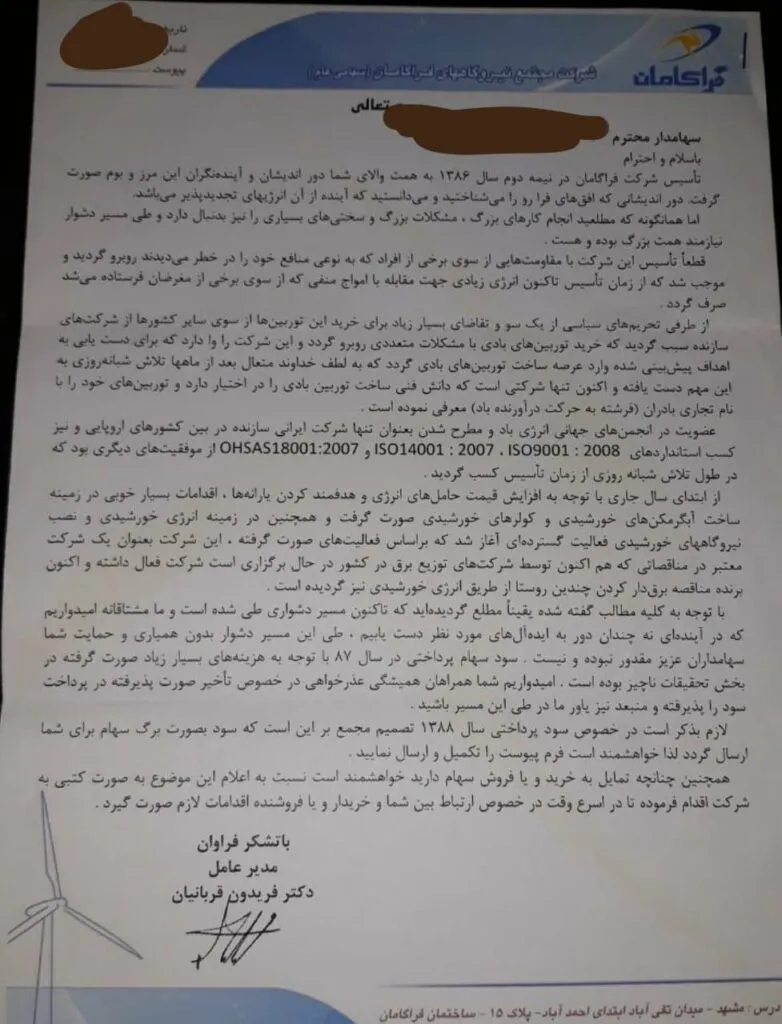 تاریخ
شماره
پیوست
فراکامان
شرکت مجتمع نیروگاههای فراکامان (سهامی عام)
تعالی
سهامدار محترم
باسلام و احترام
تأسیس شرکت فراگامان در نیمه دوم سال ۱۳۸۶ به همت والای شما دور اندیشان و آینده‌نگران این مرز و بوم صورت
گرفت. دور اندیشانی که افق‌های فرا رو را می‌شناختید و می‌دانستید که آینده از آن انرژیهای تجدیدپذیر می‌باشد.
اما همانگونه که مطلعید انجام کارهای بزرگ ، مشکلات بزرگ و سختی‌های بسیاری را نیز بدنبال دارد و طی مسیر دشوار
نیازمند همت بزرگ بوده و هست .
قطعاً تأسیس این شرکت با مقاومت‌هایی از سوی برخی از افراد که به نوعی منافع خود را در خطر می‌دیدند روبرو گردید و
موجب شد که از زمان تأسیس تاکنون انرژی زیادی جهت مقابله با امواج منفی که از سوی برخی از مغرضان فرستاده می‌شد
صرف گردد .
از طرفی تحریم‌های سیاسی از یک سو و تقاضای بسیار زیاد برای خرید این توربین‌ها از سوی سایر کشورها از شرکت‌های
سازنده سبب گردید که خرید توربین‌های بادی با مشکلات متعددی روبرو گردد و این شرکت را وا دارد که برای دست یابی به
اهداف پیش‌بینی شده وارد عرصه ساخت توربین‌های بادی گردد که به لطف خداوند متعال بعد از ماهها تلاش شبانه‌روزی به
این مهم دست یافته و اکنون تنها شرکتی است که دانش فنی ساخت توربین بادی را در اختیار دارد و توربین‌های خود را با
نام تجاری بادران (فرشته به حرکت درآورنده باد) معرفی نموده است .
عضویت در انجمن‌های جهانی انرژی باد و مطرح شدن بعنوان تنها شرکت ایرانی سازنده در بین کشورهای اروپایی و نیز
کسب استانداردهای ISO9001 : 2008 ، ISO14001 : 2007 و OHSAS18001:2007 از موفقیت‌های دیگری بود که
در طول تلاش شبانه روزی از زمان تأسیس کسب گردید .
از ابتدای سال جاری با توجه به افزایش قیمت حامل‌های انرژی و هدفمند کردن یارانه‌ها ، اقدامات بسیار خوبی در زمینه
ساخت آبگرمکن‌های خورشیدی و کولرهای خورشیدی صورت گرفت و همچنین در زمینه انرژی خورشیدی و نصب
نیروگاههای خورشیدی فعالیت گسترده‌ای آغاز شد که براساس فعالیت‌های صورت گرفته ، این شرکت بعنوان یک شرکت
معتبر در مناقصاتی که هم اکنون توسط شرکت‌های توزیع برق در کشور در حال برگزاری است شرکت فعال داشته و اکنون
برنده مناقصه برق‌دار کردن چندین روستا از طریق انرژی خورشیدی نیز گردیده است .
با توجه به کلیه مطالب گفته شده یقیناً مطلع گردیده‌اید که تاکنون مسیر دشواری طی شده است و ما مشتاقانه امیدواریم
که در آینده‌ای نه چندان دور به ایده‌آل‌های مورد نظر دست یابیم ، طی این مسیر دشوار بدون همیاری و حمایت شما
سهامداران عزیز مقدور نبوده و نیست . سود سهام پرداختی در سال ۸۷ با توجه به هزینه‌های بسیار زیاد صورت گرفته در
بخش تحقیقات ناچیز بوده است . امیدواریم شما همراهان همیشگی عذرخواهی در خصوص تأخیر صورت پذیرفته در پرداخت
سود را پذیرفته و منبعد نیز یاور ما در طی این مسیر باشید .
لازم بذکر است در خصوص سود پرداختی سال ۱۳۸۸ تصمیم مجمع بر این است که سود بصورت برگ سهام برای شما
ارسال گردد لذا خواهشمند است فرم پیوست را تکمیل و ارسال نمایید .
همچنین چنانچه تمایل به خرید و یا فروش سهام دارید خواهشمند است نسبت به اعلام این موضوع به صورت کتبی به
شرکت اقدام فرموده تا در اسرع وقت در خصوص ارتباط بین شما و خریدار و یا فروشنده اقدامات لازم صورت گیرد .
باتشکر فراوان
مدیر عامل
دکتر فریدون قربانیان
درس : مشهد - میدان تقی آباد ابتدای احمد آباد- پلاک ۱۵ - ساختمان فراکامان